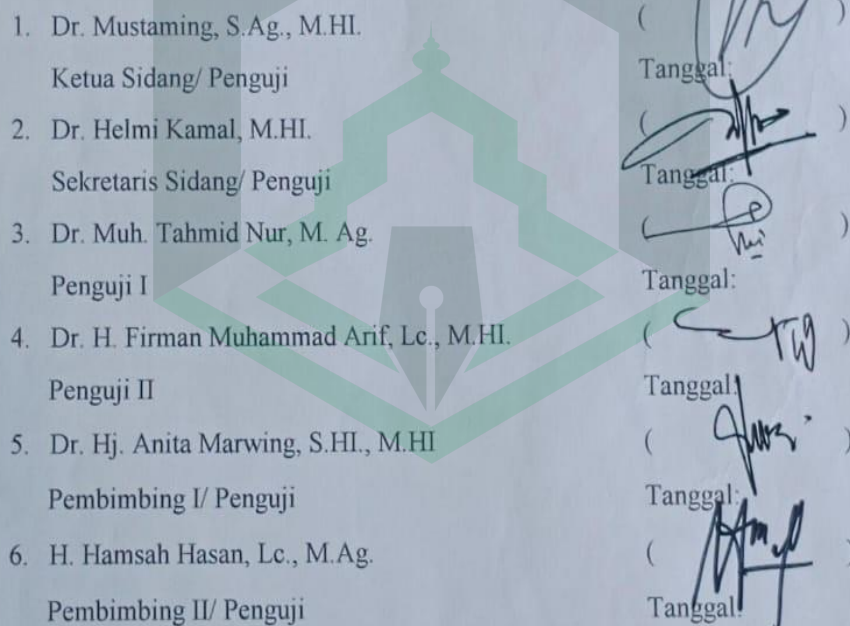 1. Dr. Mustaming, S.Ag., M.HI. ( )
Ketua Sidang/ Penguji Tanggal:
2. Dr. Helmi Kamal, M.HI. ( )
Sekretaris Sidang/ Penguji Tanggal:
3. Dr. Muh. Tahmid Nur, M. Ag. ( )
Penguji I Tanggal:
4. Dr. H. Firman Muhammad Arif, Lc., M.HI. ( )
Penguji II Tanggal:
5. Dr. Hj. Anita Marwing, S.HI., M.HI ( )
Pembimbing I/ Penguji Tanggal:
6. H. Hamsah Hasan, Lc., M.Ag. ( )
Pembimbing II/ Penguji Tanggal: